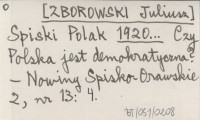 [ZBOROWSKI Juliusz]
Spiski Polak 1920... Czy
Polska jest demokratyczna?
— Nowiny Spisko-Orawskie
2, nr 13: 4.
BT/051/0208